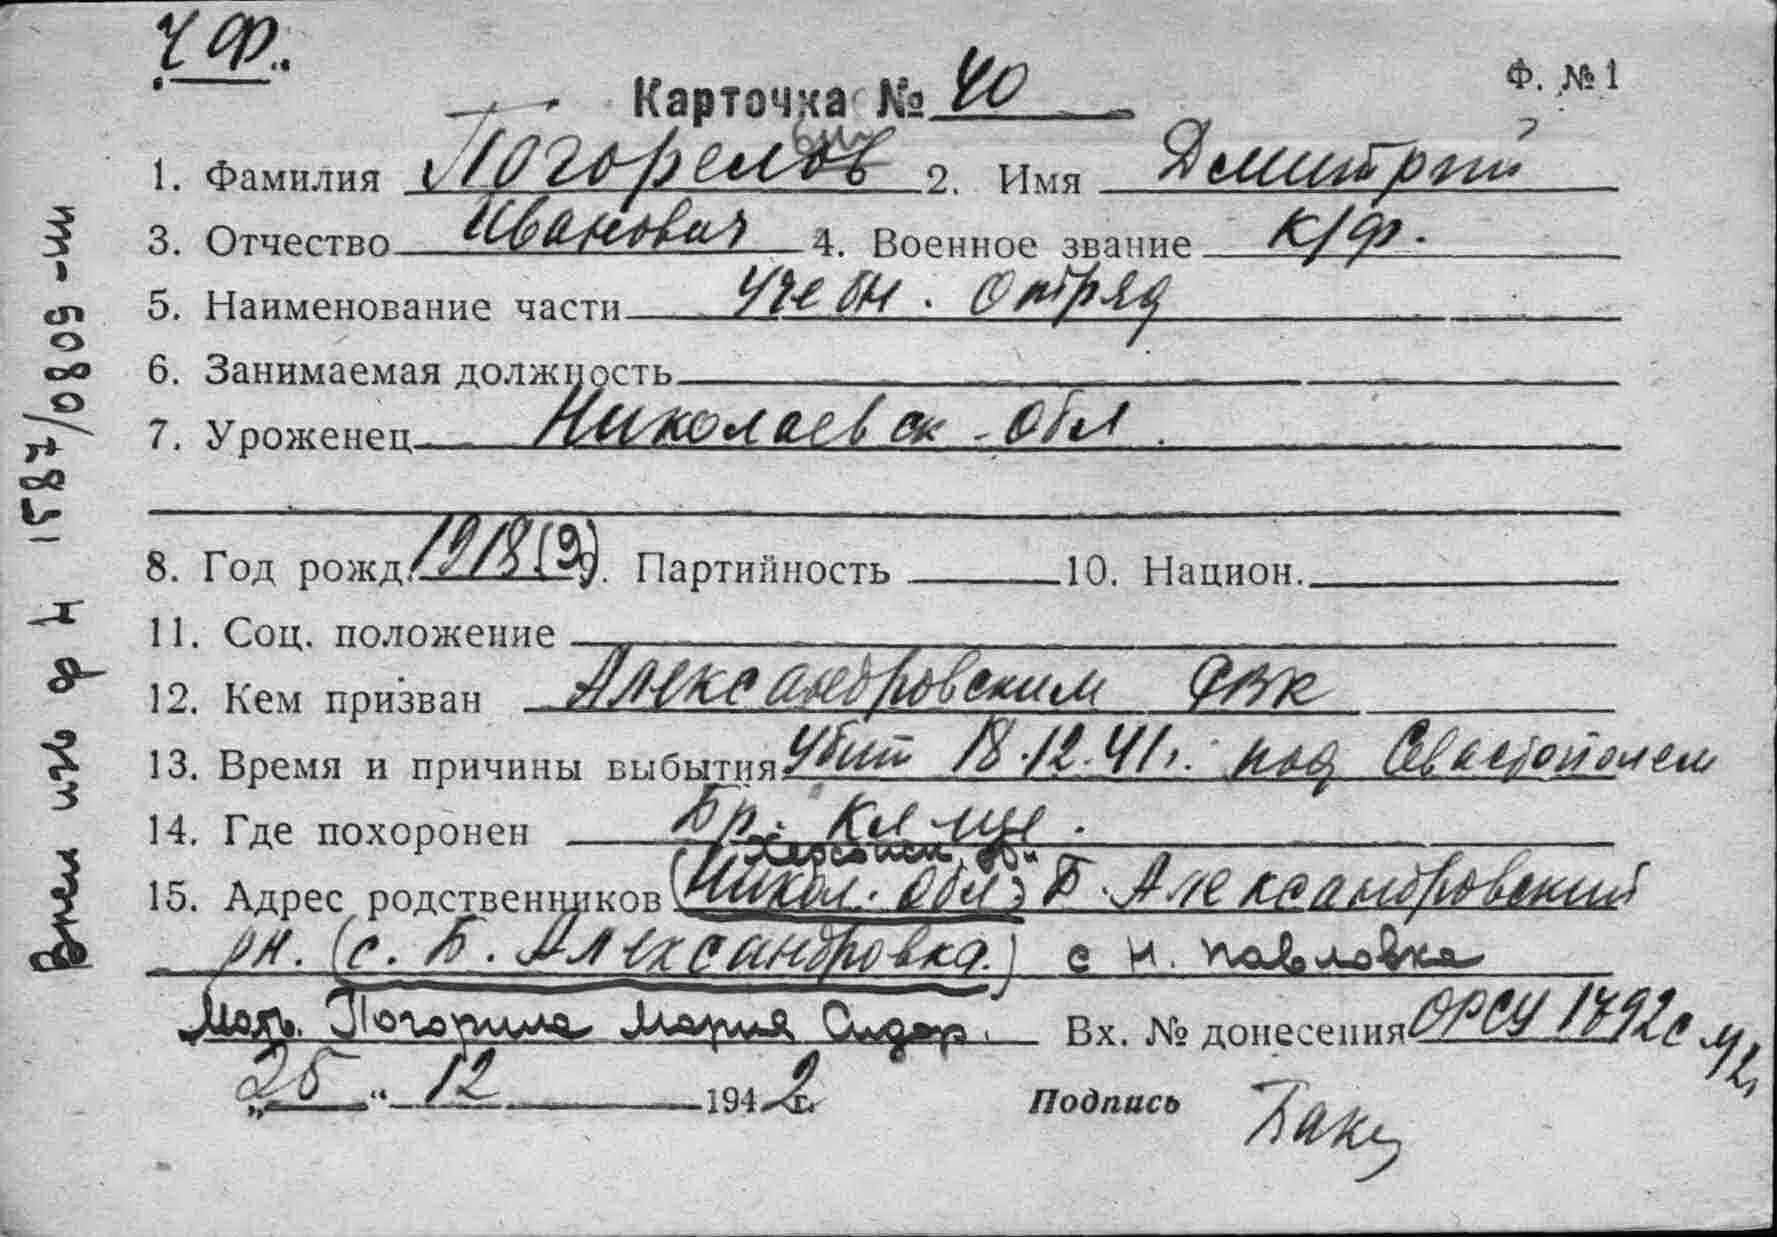 ЧФ.
Карточка № 40
Ф. № 1
1. Фамилия Погорелов 2. Имя Дмитрий
3. Отчество Иванович 4. Военное звание к/ф.
5. Наименование части Учебн. Отряд
6. Занимаемая должность
7. Уроженец Николаевск. обл.
8. Год рожд. 1918 (9) 9. Партийность 10. Национ.
11. Соц. положение
12. Кем призван Александровским РВК
13. Время и причины выбытия Убит 18.12.41 г. под Севастополем
14. Где похоронен Бр. кл-ще.
Херсонск. об.
15. Адрес родственников (Никол. обл.) Б. Александровский
рн. (с. Б. Александровка.) с Н. Павловка
Мать. Погорила Мария Сидор. Вх. № донесения ОРСУ 1792с 42г
„25“ 12 1942 г. Подпись
1587/0809-ш